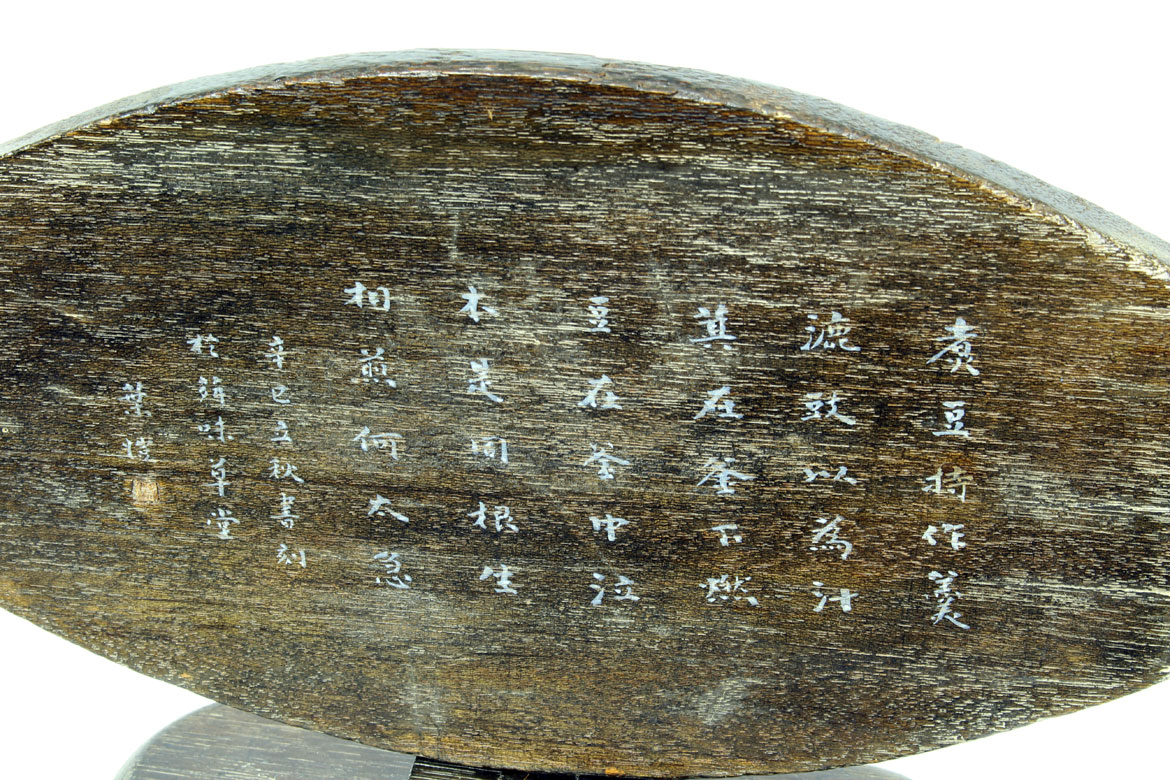 煑豆持作羹
漉豉以為汁
萁在釜下燃
豆在釜中泣
本是同根生
相煎何太急
辛巳立秋書刻
於緝味草堂
葉愷